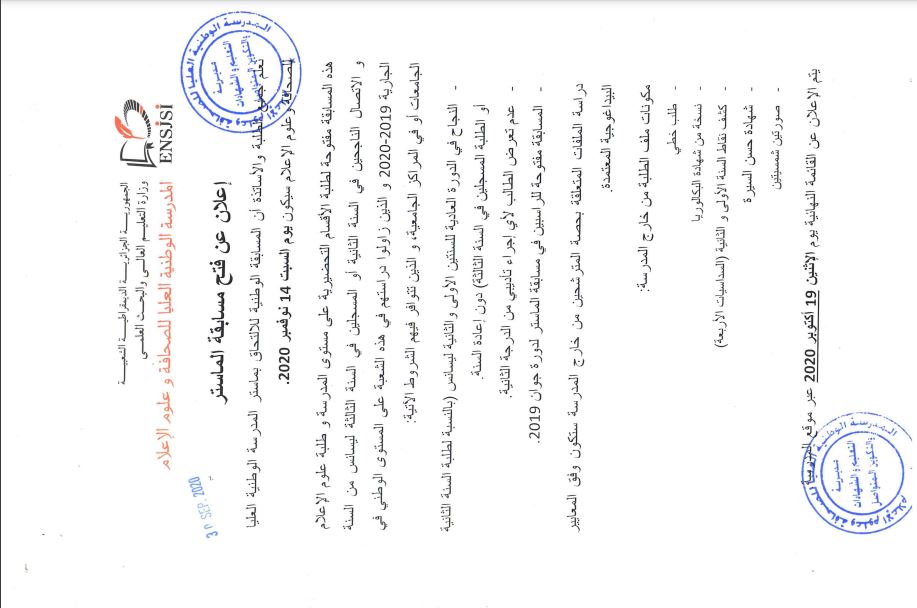 الجمهورية الجزائرية الديمقراطية الشعبية
وزارة التعليم العالي والبحث العلمي
المدرسة الوطنية العليا للصحافة و علوم الإعلام
ENSJSI
30 SEP. 2020
إعلان عن فتح مسابقة الماستر
تعلم جميع الطلبة والأساتذة أن المسابقة الوطنية للالتحاق بماستر المدرسة الوطنية العليا
للصحافة وعلوم الإعلام سيكون يوم السبت 14 نوفمبر 2020.
هذه المسابقة مفتوحة لطلبة الأقسام التحضيرية على مستوى المدرسة و طلبة علوم الإعلام
و الاتصال الناجحين في السنة الثانية أو المسجلين في السنة الثالثة ليسانس من السنة
الجارية 2019-2020 و الذين زاولوا دراستهم في هذه الشعبة على المستوى الوطني في
الجامعات أو في المراكز الجامعية، و الذين تتوافر فيهم الشروط الآتية:
- النجاح في الدورة العادية للسنتين الأولى والثانية ليسانس (بالنسبة لطلبة السنة الثانية
أو الطلبة المسجلين في السنة الثالثة) دون إعادة السنة.
- عدم تعرض الطالب لأي إجراء تأديبي من الدرجة الثانية.
- المسابقة مفتوحة للراسبين في مسابقة الماستر لدورة جوان 2019.
دراسة الملفات المتعلقة بحصة المترشحين من خارج المدرسة ستكون وفق المعايير
البيداغوجية المعتمدة.
مكونات ملف الطلبة من خارج المدرسة:
- طلب خطي
- نسخة من شهادة البكالوريا
- كشف نقاط السنة الأولى و الثانية (السداسيات الأربعة)
- شهادة حسن السيرة
- صورتين شمسيتين
يتم الإعلان عن القائمة النهائية يوم الإثنين 19 أكتوبر 2020 عبر موقع المدرسة
المدرسة الوطنية العليا للصحافة وعلوم الإعلام
مديرية
التعليم و الشهادات
والتكوين المتواصل
المدرسة الوطنية العليا للصحافة وعلوم الإعلام
مديرية
التعليم و الشهادات
والتكوين المتواصل